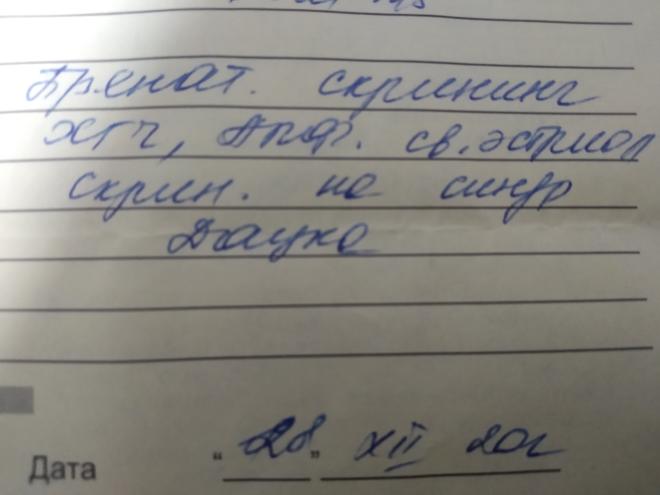 Пренат. скрининг
ХГЧ, Апф. св. эстриол
скрин. на синдр
Дауна
Дата "28" XII 20г